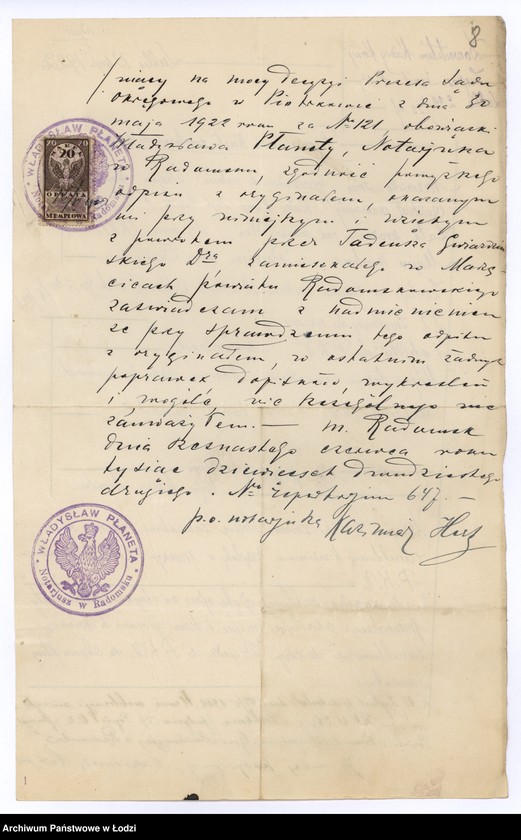 8
niący na mocy decyzji Prezesa Sądu
Okręgowego w Piotrkowie z dnia 30
maja 1922 roku za № 121 obowiązki
Władysława Płanety, Notarjusza
w Radomsku, zgodność powyższego
odpisu z oryginałem, okazanym
mi przy niniejszym i wziętym
z powrotem przez Tadeusza Gwiazdow
skiego Dra zamieszkałego w
cicach powiatu Radomskowskiego
zaświadczam z nadmienieniem
że przy sprawdzeniu tego odpisu
z oryginałem, w ostatnim żadnych
poprawek dopisków, wykreśleń
i wogóle nic szczególnego nie
zauważyłem. — m. Radomsk
dnia szesnastego czerwca roku
tysiąc dziewięćset dwudziestego
drugiego. № repertorjum 647. —
p.o. notarjusza Kazimierz
WŁADYSŁAW PŁANETA
Notarjusz w Radomsku
70 70
OPŁATA
STEMPLOWA
WŁADYSŁAW PŁANETA
Notarjusz w Radomsku
1
Archiwum Państwowe w Łodzi